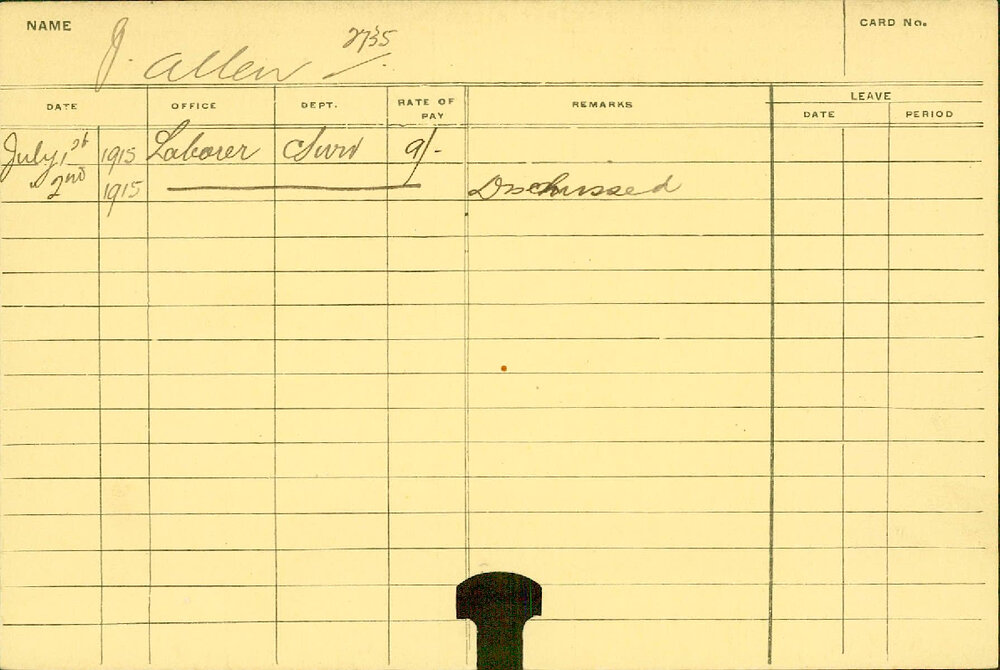 NAME
J. Allen 2735
CARD No.
DATE OFFICE DEPT. RATE OF PAY REMARKS LEAVE
DATE PERIOD
July 1st 1915 Laborer 9/-
" 2nd 1915 Dischussed